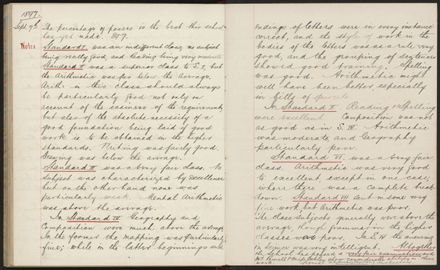 1897
Sept 9th The percentage of passes is the best this school
has yet made. 89.7.
Notes Standard I was an indifferent class, no subject
being really good, and reading being very
Standard II was a superior class to S. I but
the Arithmetic was far below the average.
Arith in this class should always
be particularly good not only on
account of the easiness of the requirements
but also of the absolute necessity of a
good foundation being laid if good
work is to be obtained in the higher
standards. Writing was fairly good.
Drawing was below the average.
Standard III was a very fair class. No
subject was characterized by excellence
but on the other hand none was
particularly weak. Mental Arithmetic
was above the average.
In Standard IV Geography and
Composition were much above the average
In the former the mapping was particularly
fine; while in the latter beginnings and
endings of letters were in every instance
correct, and the style of work in the
bodies of the letters was as a rule very
good, and the grouping of sentences
should good training. Spelling
was good. Arithmetic might
well have been better, especially
in
In Standard V Reading & Spelling
were excellent. Composition was not
as good as in S. IV. Arithmetic
was moderate and Geography
particularly poor.
Standard VI was a very fair
class. Arithmetic was very good
to excellent except in one case,
where there was a complete break
down. Standard VII sent in some very
fair work but Arithmetic was poor.
The class subjects generally were above the
average, though grammar in the higher
classes was poor. The
in lower was very intelligent. Altogether
the school has passed a very fair examination and